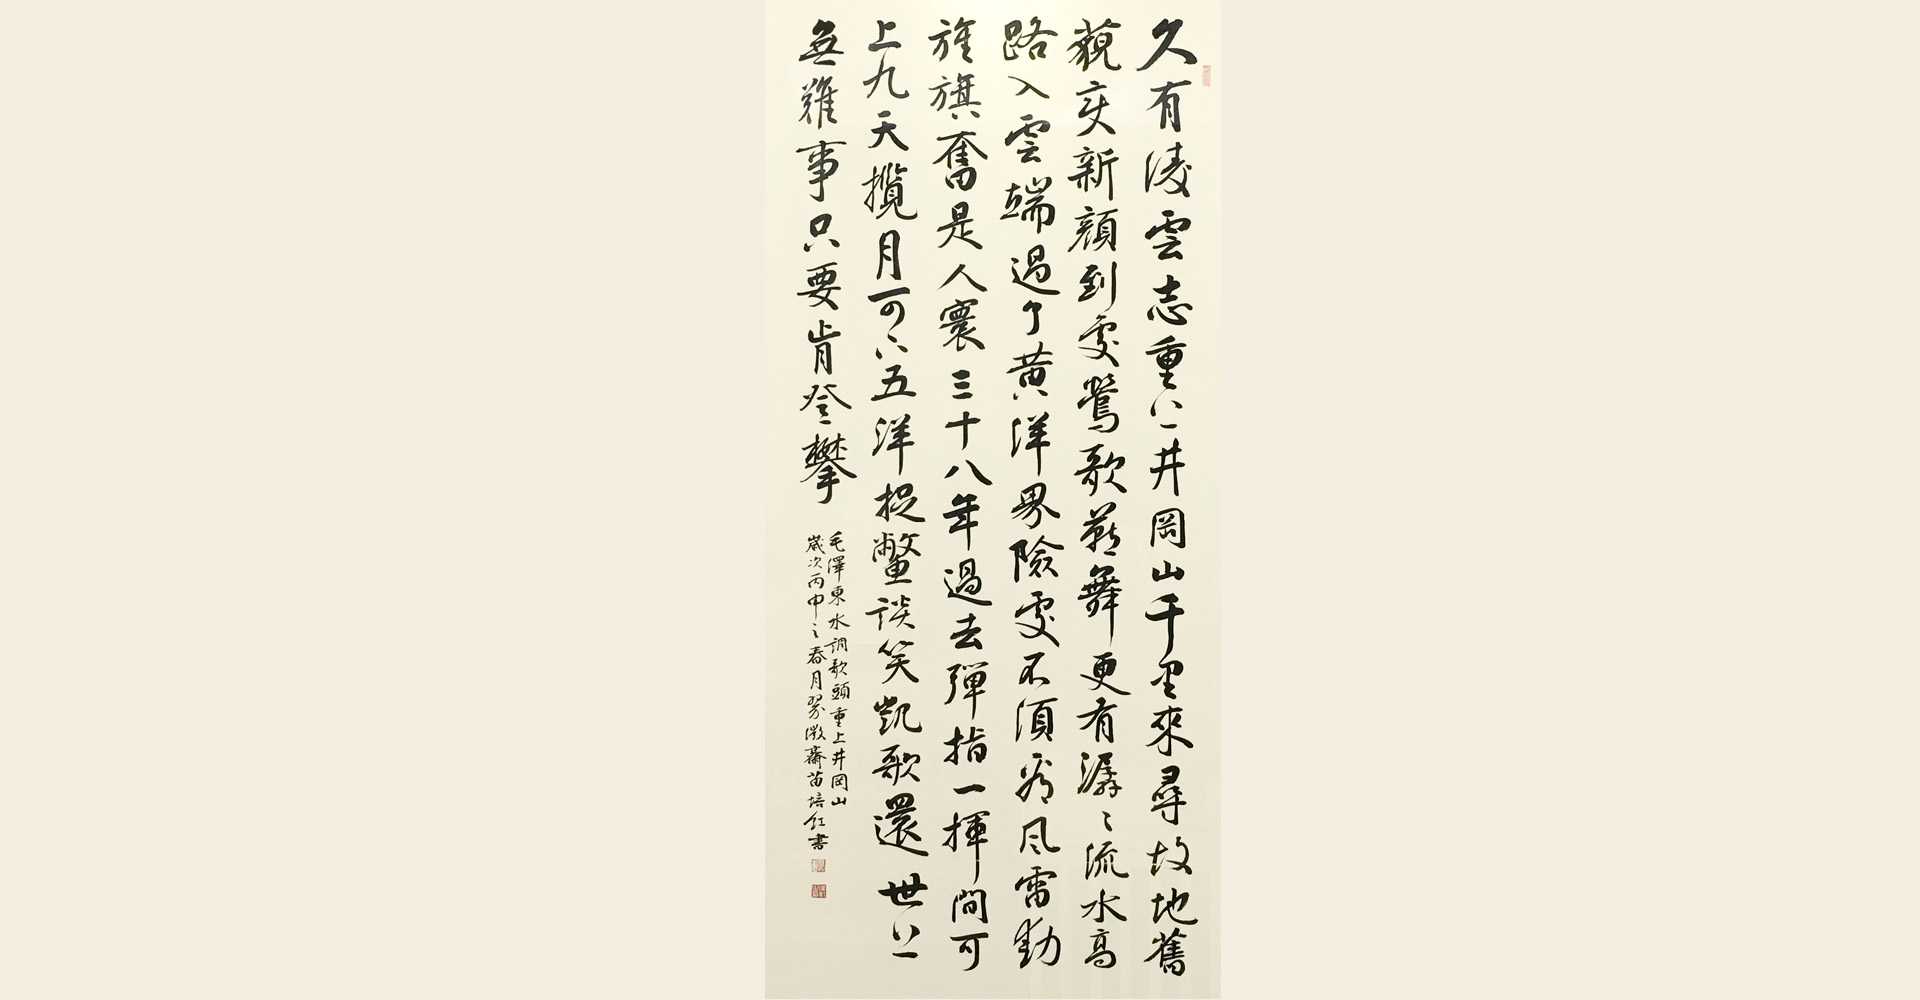 久有凌雲志重上井岡山千里來尋故地舊
藐變新顔到處鶯歌燕舞更有潺〻流水高
路入雲端過了黄洋界險處不須看风雷動
旌旗奮是人寰三十八年過去彈指一揮間可
上九天攬月可下五洋捉鱉談笑凱歌還世上
無難事只要肯登攀
毛澤東水調歌頭重上井岡山
歲次丙申之春月翠微齋苗培紅書